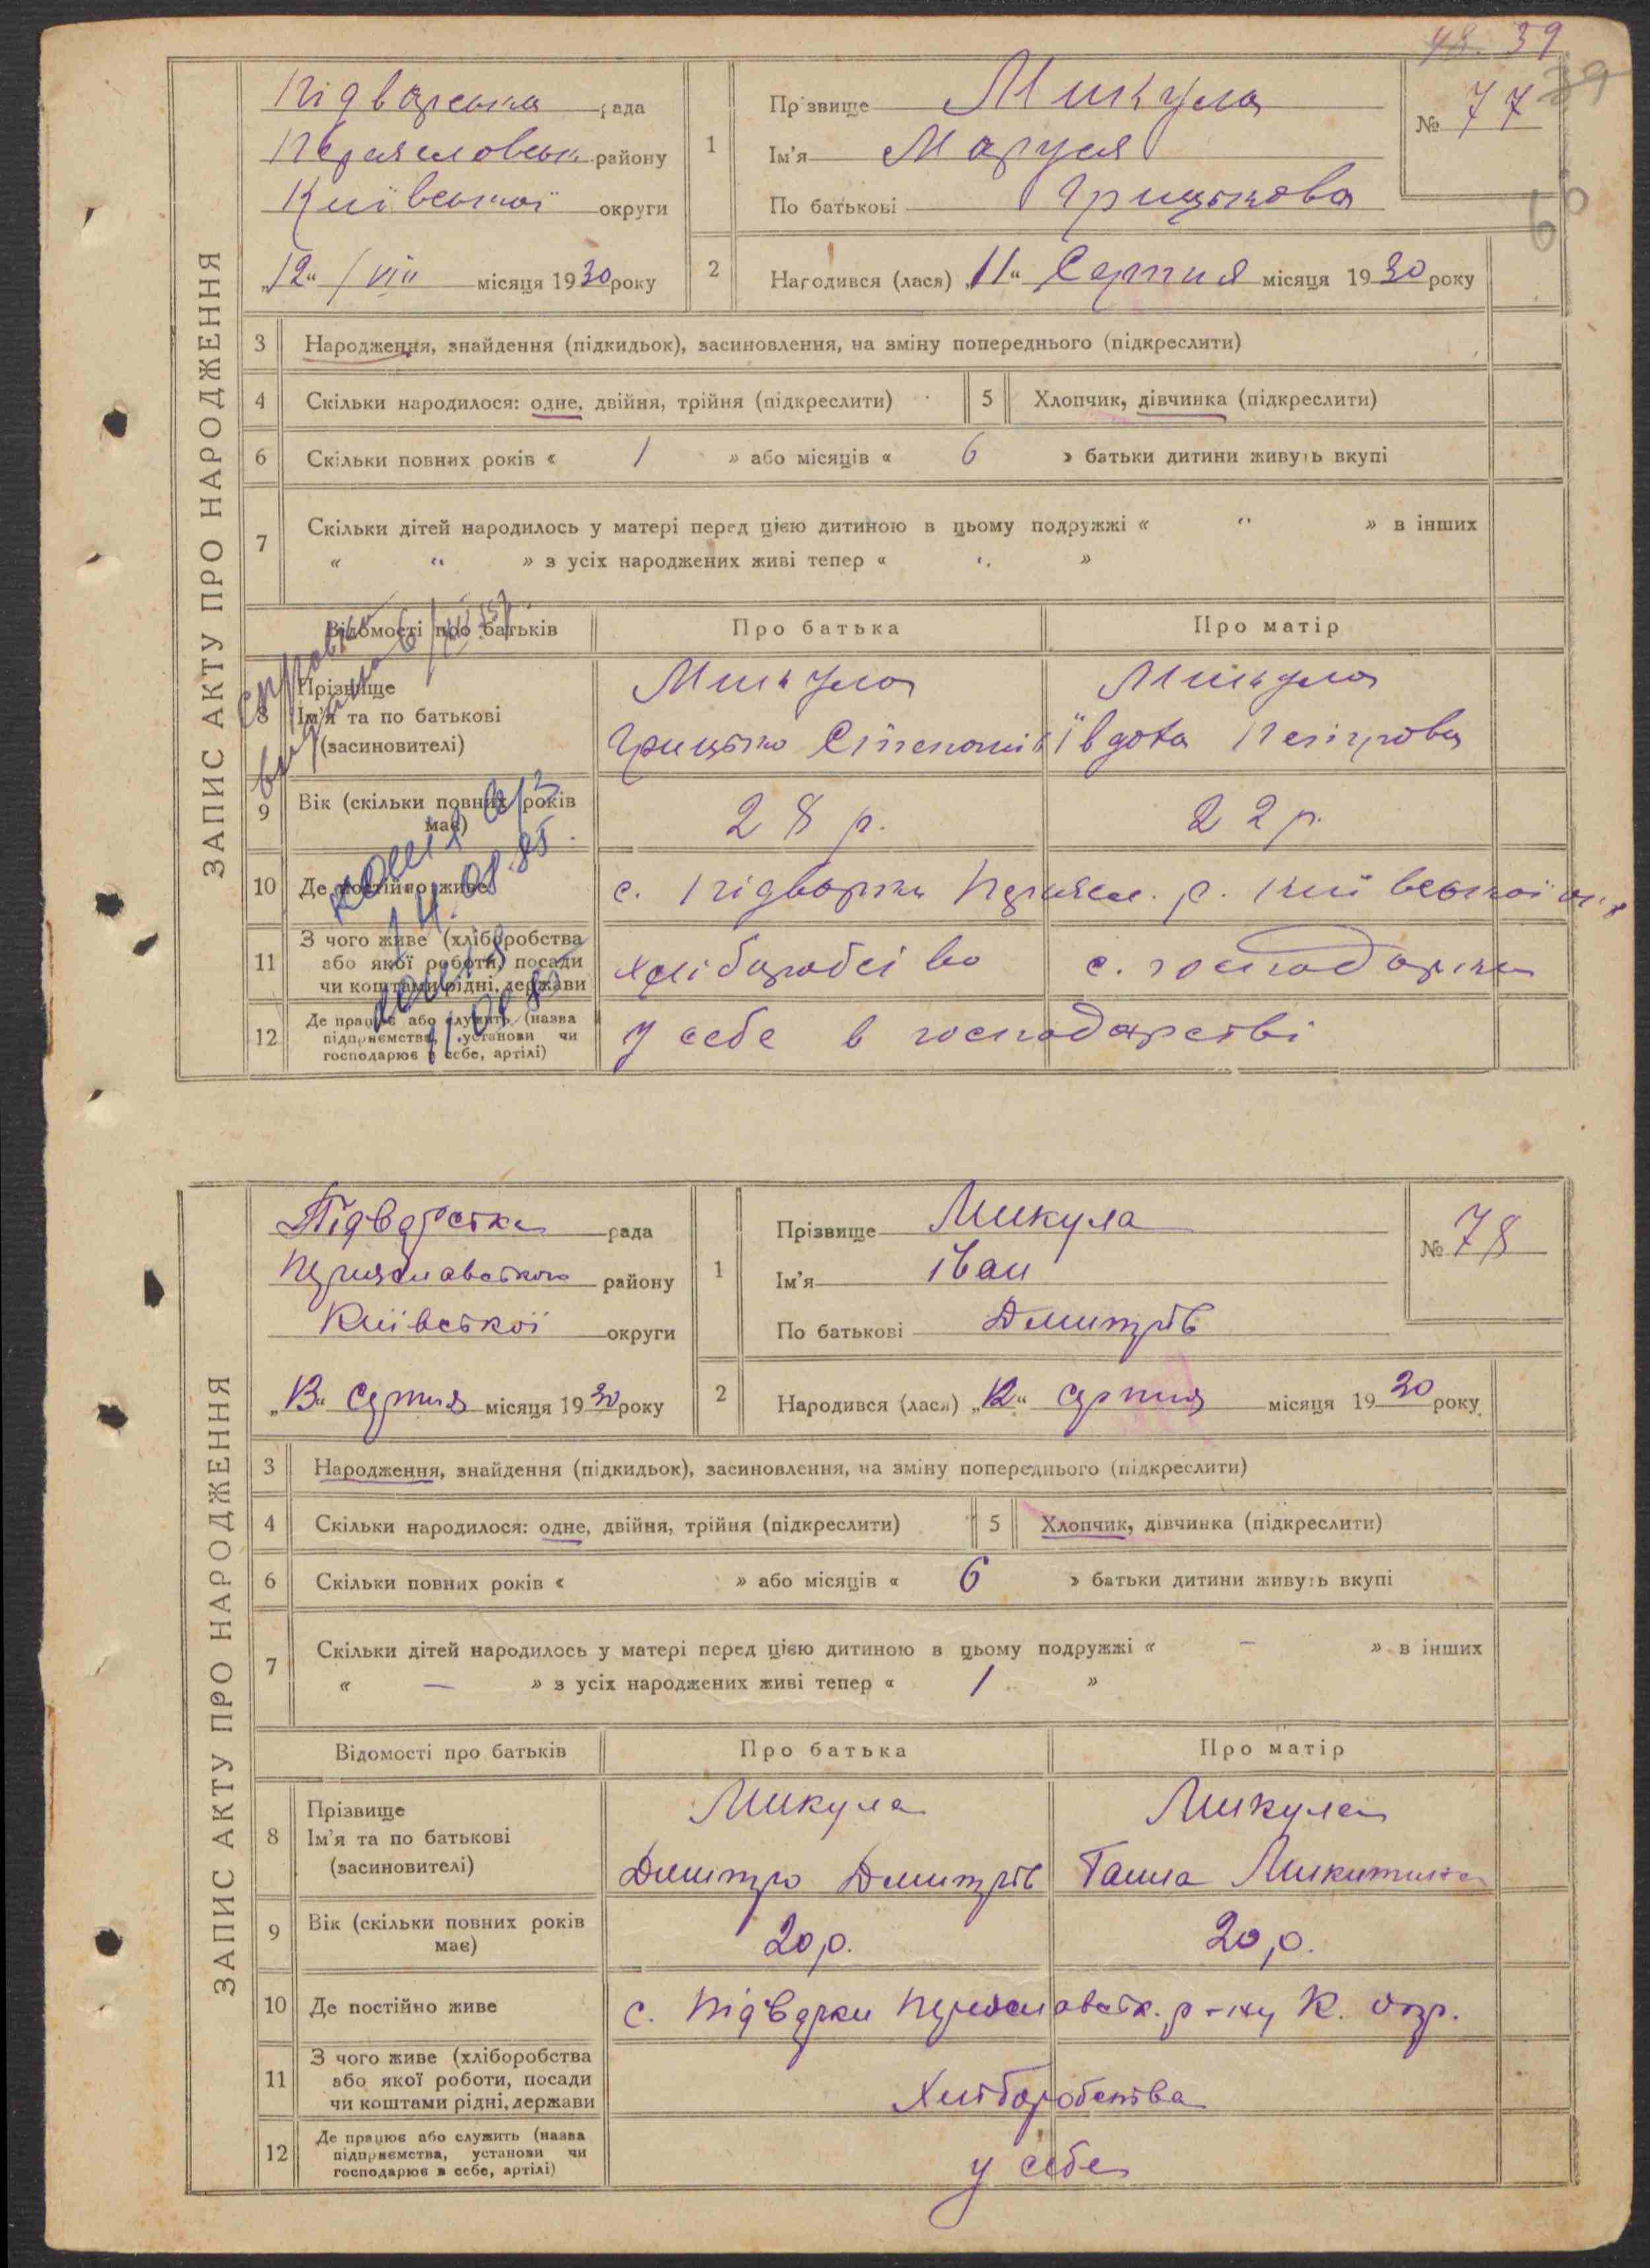 48. 39
39
ЗАПИС АКТУ ПРО НАРОДЖЕННЯ
Підварська рада
Переясловськ. району
Київської округи
„12“ /VIII місяця 1930 року
1
Прізвище Микула
Ім'я Маруся
По батькові Грицькова
№ 77
2
Народився (лася) „11“ Серпня місяця 1930 року
3 Народження, знайдення (підкидьок), засиновлення, на зміну попереднього (підкреслити)
4 Скільки народилося: одне, двійня, трійня (підкреслити) 5 Хлопчик, дівчинка (підкреслити)
6 Скільки повних років « 1 » або місяців « 6 » батьки дитини живуть вкупі
7 Скільки дітей народилось у матері перед цією дитиною в цьому подружжі « " » в інших
« " » з усіх народжених живі тепер « " »
Відомості про батьків Про батька Про матір
8 Прізвище Микула Микула
Ім'я та по батькові Грицько Степанів Ївдока Петрова
(засиновителі)
9 Вік (скільки повних років має) 28 р. 22 р.
10 Де постійно живе с. Підварки Переясл. р. Київської окр
11 З чого живе (хліборобства або якої роботи, посади чи коштами рідні, держави хліборобство с. господарка
12 Де працює або служить (назва підприємства, установи чи господарює в себе, артілі) у себе в господарстві
копія
14.08.85.
ЗАПИС АКТУ ПРО НАРОДЖЕННЯ
Підварська рада
Переяславського району
Київської округи
„13“ Серпня місяця 1930 року
1
Прізвище Микула
Ім'я Іван
По батькові Дмитрів
№ 78
2
Народився (лася) „12“ серпня місяця 1930 року
3 Народження, знайдення (підкидьок), засиновлення, на зміну попереднього (підкреслити)
4 Скільки народилося: одне, двійня, трійня (підкреслити) 5 Хлопчик, дівчинка (підкреслити)
6 Скільки повних років « » або місяців « 6 » батьки дитини живуть вкупі
7 Скільки дітей народилось у матері перед цією дитиною в цьому подружжі « — » в інших
« — » з усіх народжених живі тепер « 1 »
Відомості про батьків Про батька Про матір
8 Прізвище Микула Микула
Ім'я та по батькові Дмитро Дмитрів Ганна Микитина
(засиновителі)
9 Вік (скільки повних років має) 20 р. 20 р.
10 Де постійно живе с. Підварки Переяславськ. р-ну К. окр.
11 З чого живе (хліборобства або якої роботи, посади чи коштами рідні, держави Хліборобства
12 Де працює або служить (назва підприємства, установи чи господарює в себе, артілі) у себе